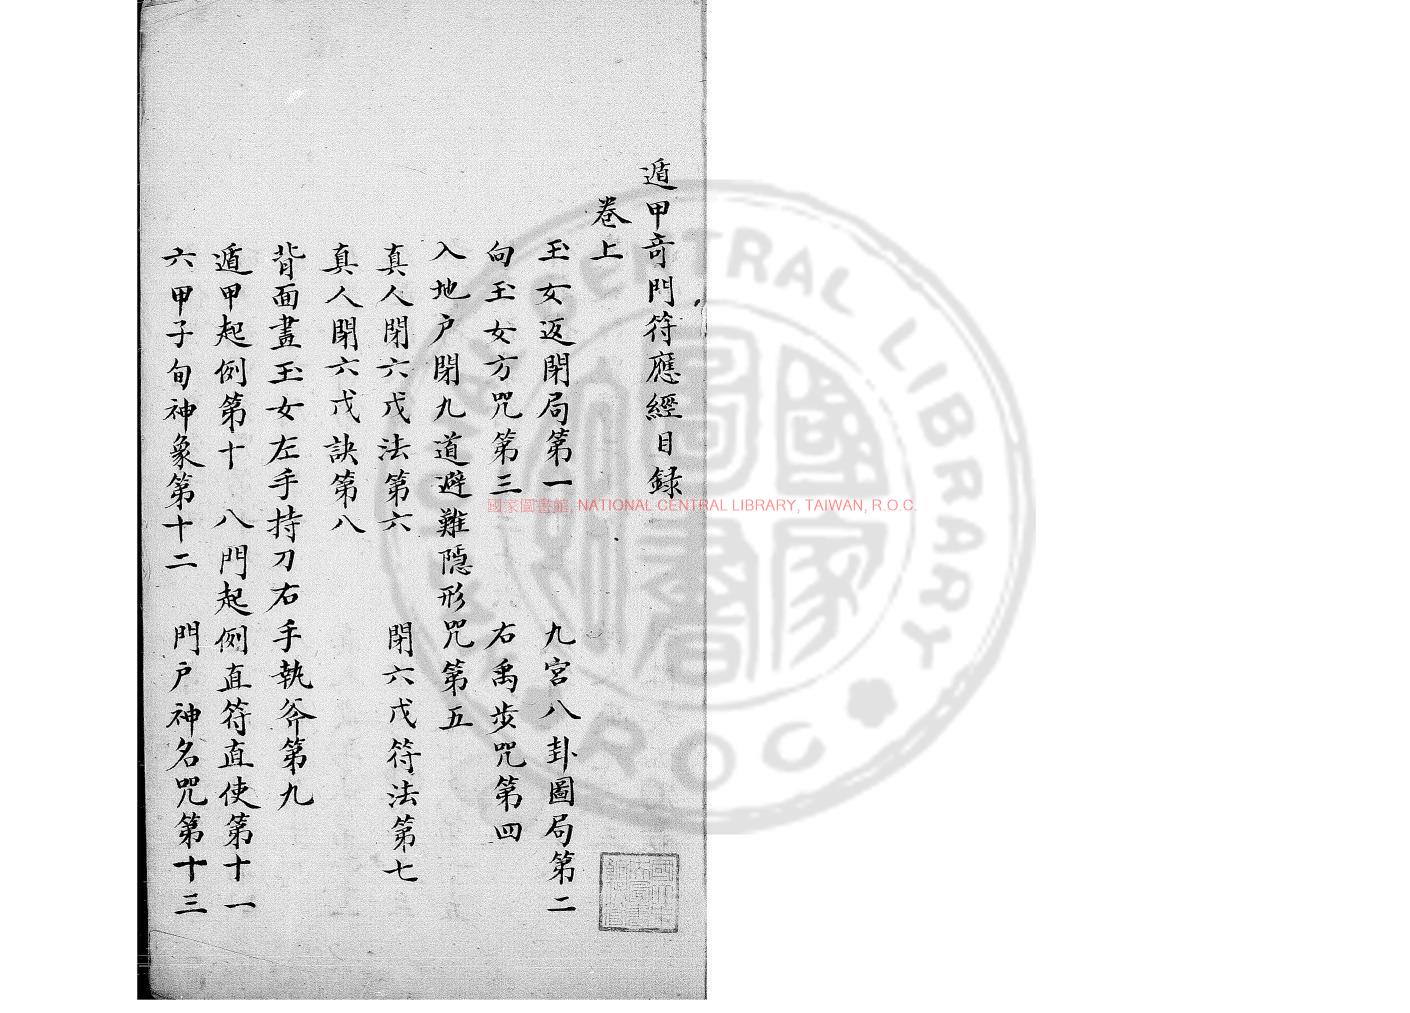 遁甲竒門符應經目録
卷上
玉女返閉局第一　九宮八卦圖局第二
向玉女方咒第三　右禹步咒第四
入地户閉九道避難隱形咒第五
真人閉六戊法第六　閉六戊符法第七
真人閉六戊訣第八
背面畫玉女左手持刀右手執斧第九
遁甲起例第十　八門起例直符直使第十一
六甲子旬神象第十二　門户神名咒第十三
國家圖書館, NATIONAL CENTRAL LIBRARY, TAIWAN, R.O.C.
NATIONAL CENTRAL LIBRARY
R.O.C.
國家圖書